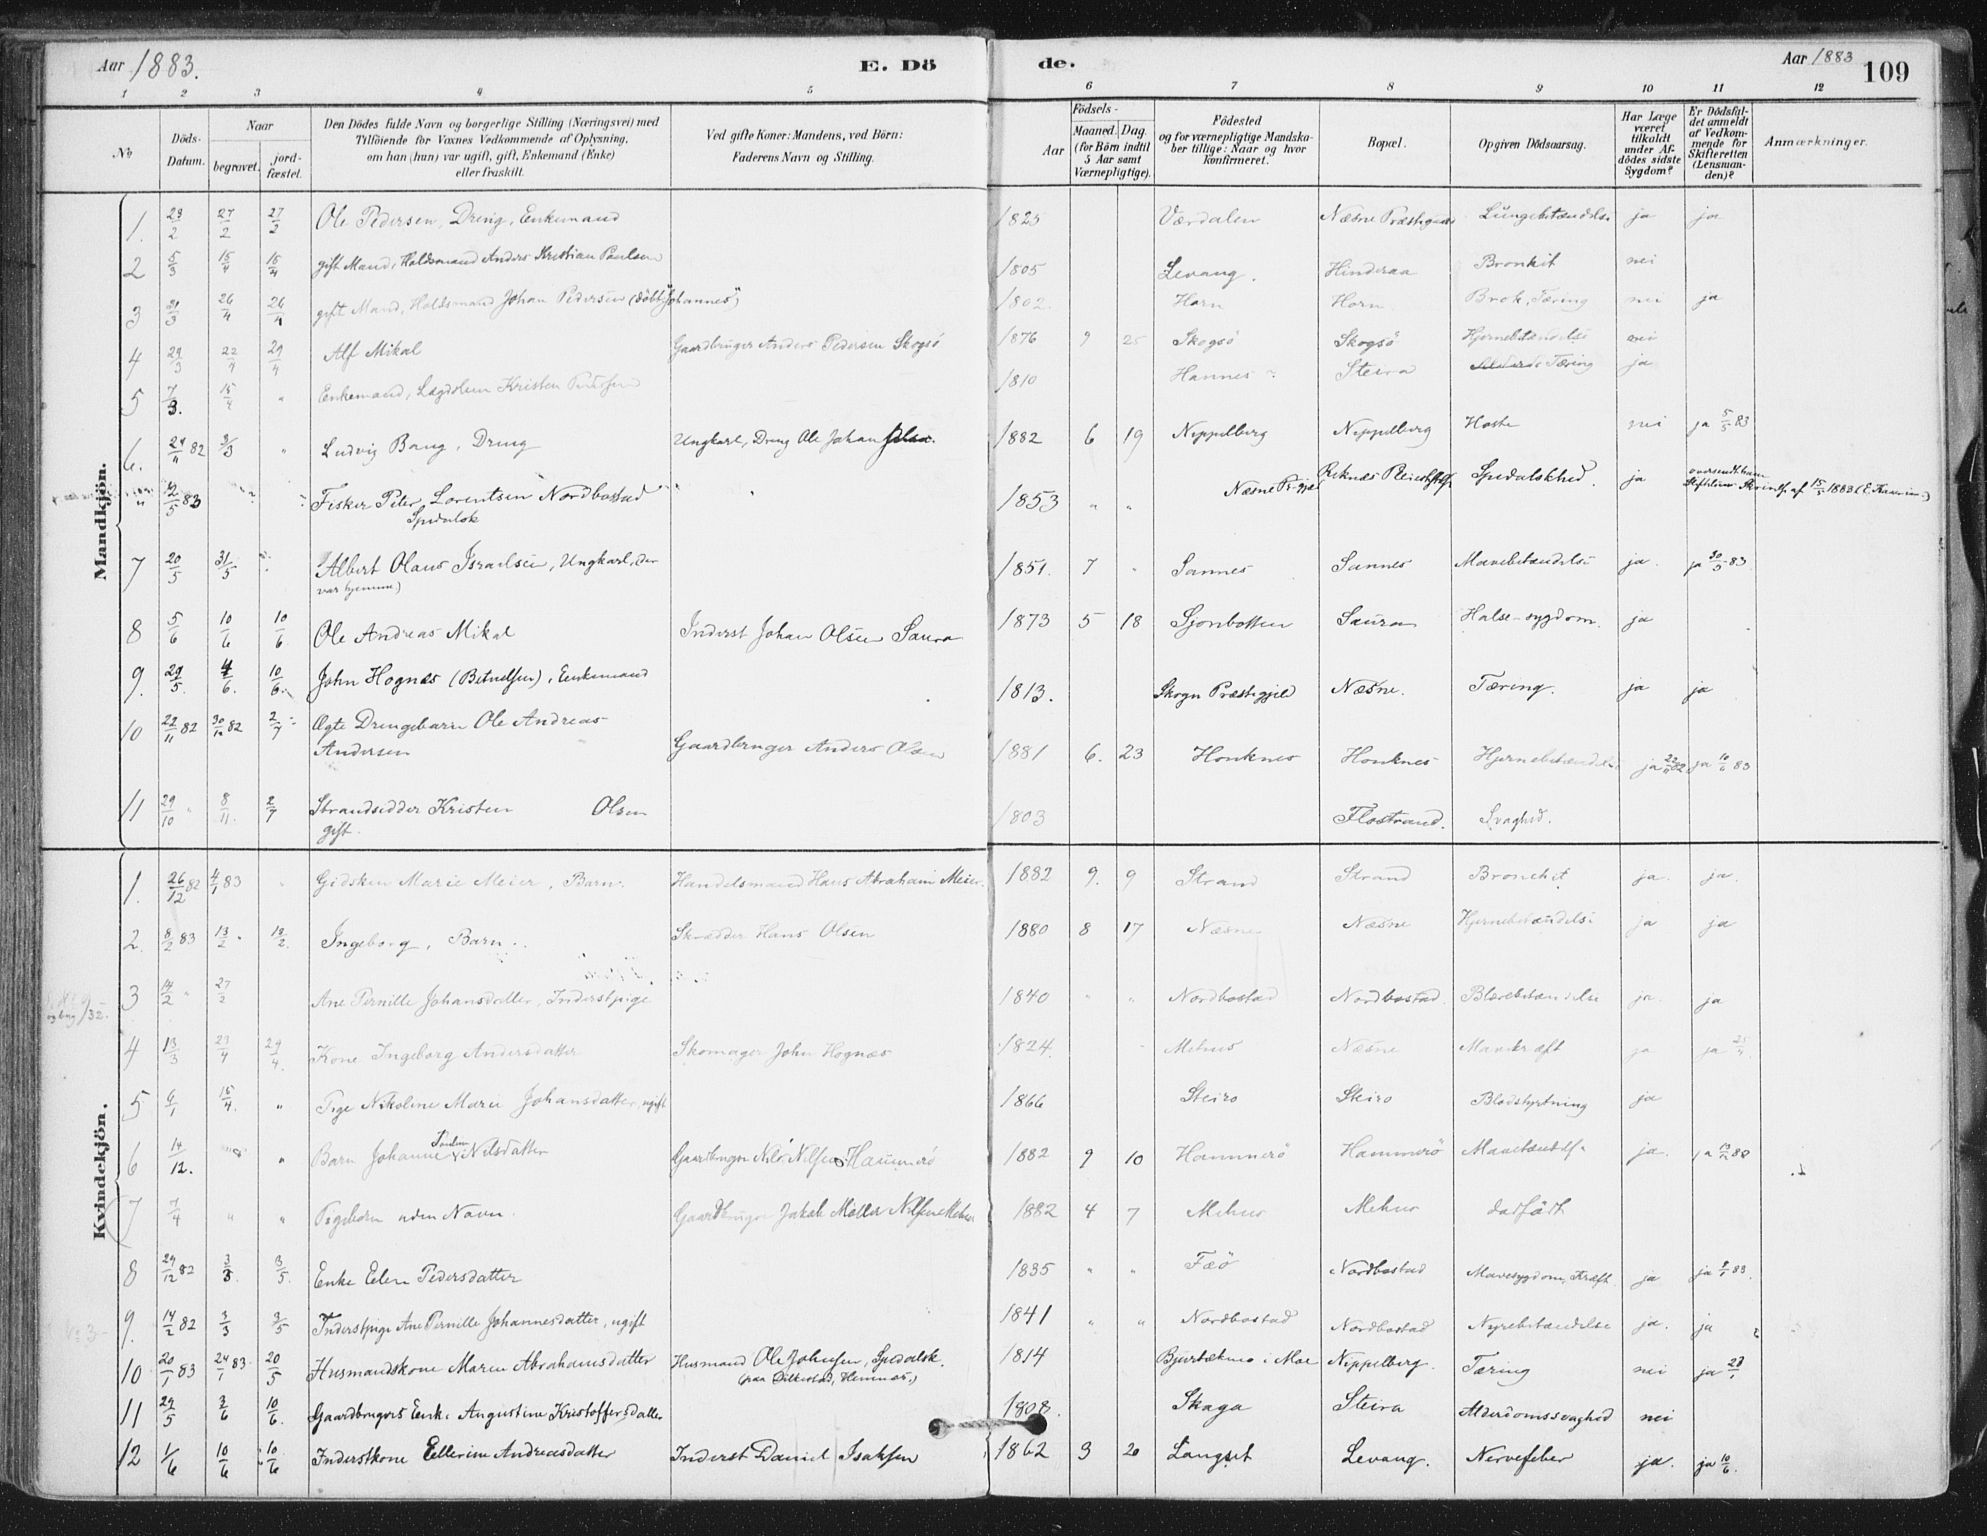 Aar 1883.
E. Dö
de.
Aar 1883
109
1 2 3 4 5 6 7 8 9 10 11 12
No
Döds-Datum.
Naar
begravet.
jord-fæstet.
Den Dödes fulde Navn og borgerlige Stilling (Næringsvei) med
Tilföiende for Voxnes Vedkommende af Oplysning,
om han (hun) var ugift, gift, Enkemand (Enke)
eller fraskilt.
Ved gifte Koner: Mandens, ved Börn:
Faderens Navn og Stilling.
Födsels-
Aar
Maaned. Dag.
(for Börn indtil
5 Aar samt
Værnepligtige).
Födested
og for værnepligtige Mandska-
ber tillige: Naar og hvor
konfirmeret.
Bopæl.
Opgiven Dödsaarsag.
Har Læge
været
tilkaldt
under Af-
dödes sidste
Sygdom?
Er Dödsfal-
det anmeldt
af Vedkom-
mende for
Skifteretten
(Lensman-
den)?
Anmærkninger.
Mandkjön.
1. 23/2 27/2 27/2 Ole Pedersen, Dreng, Enkemand 1825 Værdalen Næsne Lungebetændelse ja ja
2 5/3 15/4 15/4 gift Mand, Holdsmand Anders Kristian Paulsen 1805 Levang. Hinderaa Bronkit nei
3 21/3 26/4 26/4 gift Mand, Holdsmand Johan Pedersen (döbt "Johannes") 1802. Horn Horn Brok, Tæring nei ja
4 29/3 22/4 29/4 Alf Mikal Gaardbruger Anders Pedersen Skogsö 1876 9 25 Skogsö Skogsö Hjernebetændelse nei
5 7/3. 15/4 " Enkemand, Lægdslem Kristen 1810 Hannes Steira Tæring ja
6. 24/11 82 3/3 " Ludvig Bang, Dreng Ungkarl, Dreng Ole Johan 1882 6 19 Nippelberg Nippelberg Hoste nei ja 5/5 83
" 12/5 83 " Fisker Peter Lorentsen Nordbostad " 1853 " " Næsne Reknes Spedalskhed. ja
Spedalsk
15/5 1883
7 20/5 31/5 Albert Olaus Israelsen, Ungkarl, der 1851. 7 " Sannes Sannes Mavebetændelse ja. ja 30/5 83
var hjemme)
8 5/6 10/6 10/6 Ole Andreas Mikal Inderst Johan Olsen Saura 1873 5 18 Sjonbotten Saura Halse-sygdom. ja
9. 29/5. 4/6. 10/6. John Hognæs, Enkemand 1813. Skogn Præstegjeld Næsne. Tæring. ja ja
10 22/11 82 30/12 82 2/7 Ægte Drengebarn Ole Andreas
Andersen Gaardbruger Anders Olsen 1881 6. 23 Honknes Honknes Hjernebetændelse ja ja 10/6 83
11 29/10 " 8/11. 2/7 Strandsidder Kristen Olsen 1803 Flostrand. Svaghed.
gift.
Kvindekjön.
1. 26/12 82 4/1 83 " Gidsken Marie Meier, Barn. Handelsmand Hans Abraham Meier. 1882 9. 9 Strand Strand Bronchit ja. ja.
2. 8/2 83 13/2 " 13/2. Ingeborg, Barn. Skrædder Hans Olsen 1880 8 17 Næsne Næsne Hjernebetændelse ja ja
3 14/2 " 27/2 Ane Pernille Johansdatter, Inderstpige 1840 " " Nordbostad Nordbostad. Blærebetændelse ja. ja
4 13/3 23/4 29/4. Kone Ingeborg Andersdatter Skomager John Hognæs 1824. Mehus Næsne Mavekræft ja ja
5 6/1 15/4. " Pige Nikoline Marie Johansdatter, ugift 1866 Steiro Steiro Blodstyrtning ja
6 14/12. " Barn Johanne Nilsdatter Gaardbruger Nils Nilsen Hammerö 1882 9 10 Hammerö Hammerö ja. ja
7 7/4 " " Pigebarn uden Navn. Gaardbruger Jakob Möller Nilsen Mehus 1882 4 7 Mehus Mehus dødfödt
8 24/12 82 3/3. 3/5. Enke Elen Pedersdatter 1835 " " Fæö Nordbostad Mavesygdom, Kræft ja ja 83.
9. 14/2 82 3/3 3/5 Inderstpige Ane Pernille Johannesdatter, ugift 1841 " " Nordbostad Nordbostad Nyrebetændelse ja. ja
10 20/1 83 24/1 83 20/5 Husmandskone Maren Abrahamsdatter Husmand Ole Johnsen, Spedalsk. 1814 i Moe Nippelberg. Tæring nei ja
11 29/5 3/6 10/6. Gaardbrugers Enke Augustine Kristoffersdatter 1808. Skaga Steira Alderdomssvaghed nei
12 1/6 10/6 10/6 Inderstkone Ellerine Andreasdatter Inderst Daniel Isaksen 1862 3 20 Langset Levang. Nervefeber ja. ja 10/6.